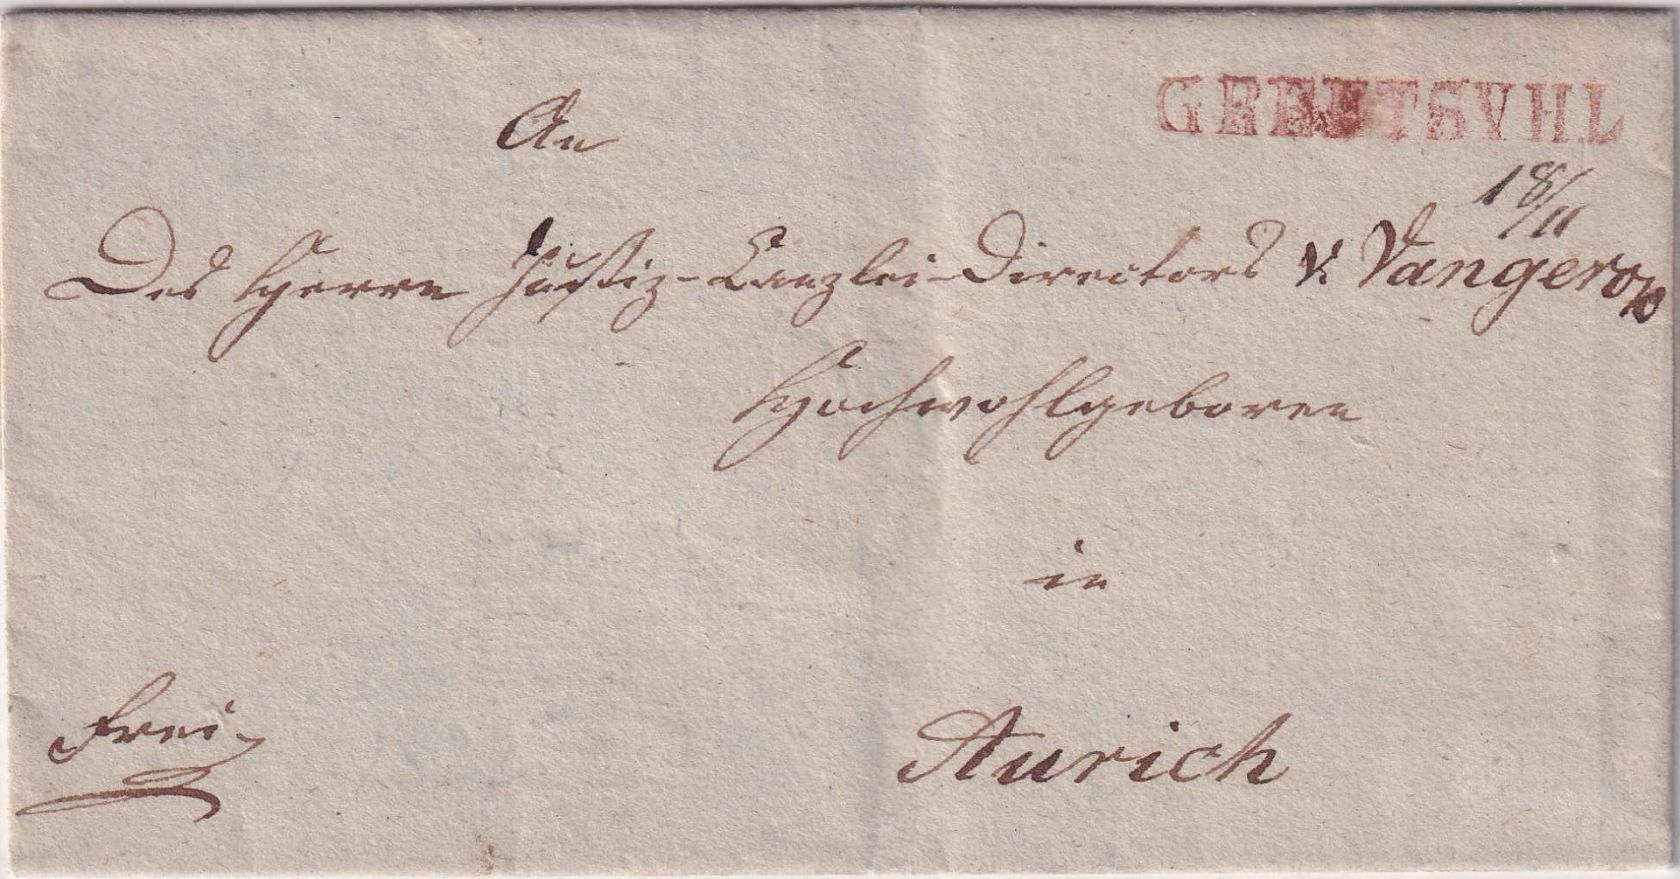 GREETSYHL
18/11
An
Des Herrn Justiz-Canzlei-Directors v. Vangerow
Hochwohlgeboren
in
Aurich
Frei